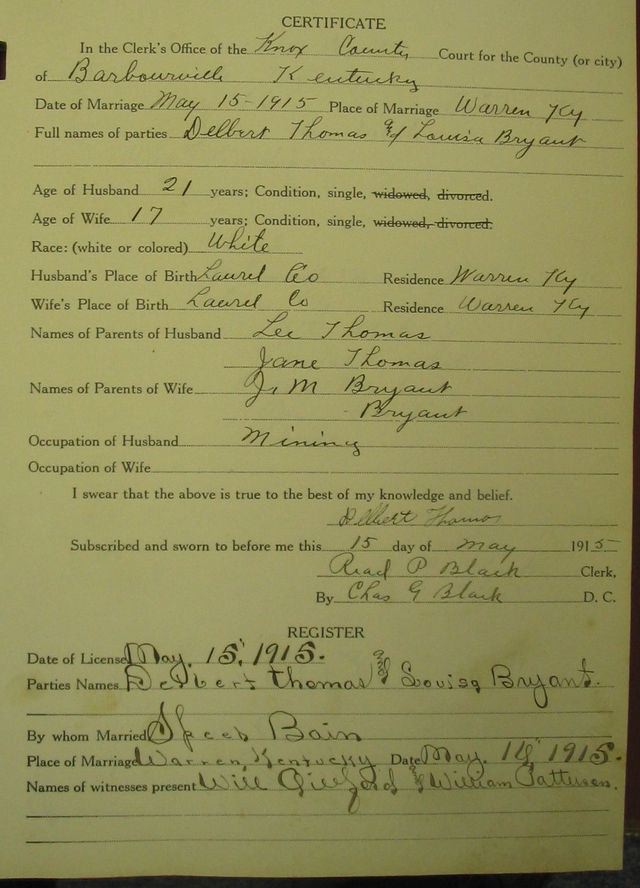 CERTIFICATE
In the Clerk's Office of the Knox County Court for the County (or city)
of Barbourville Kentucky
Date of Marriage May 15-1915 Place of Marriage Warren Ky
Full names of parties Delbert Thomas & Louisa Bryant
Age of Husband 21 years; Condition, single, widowed, divorced.
Age of Wife 17 years; Condition, single, widowed, divorced.
Race: (white or colored) White
Husband's Place of Birth Laurel Co Residence Warren Ky
Wife's Place of Birth Laurel Co Residence Warren Ky
Names of Parents of Husband Lee Thomas
Jane Thomas
Names of Parents of Wife J. M Bryant
Bryant
Occupation of Husband Mining
Occupation of Wife
I swear that the above is true to the best of my knowledge and belief.
Delbert Thomas
Subscribed and sworn to before me this 15 day of May 1915
Read P Black Clerk,
By Chas G Black D. C.
REGISTER
Date of License May. 15, 1915.
Parties Names Delbert Thomas & Louisa Bryant.
By whom Married Speed Bain
Place of Marriage Warren, Kentucky Date May. 1915.
Names of witnesses present Will & William Patterson.